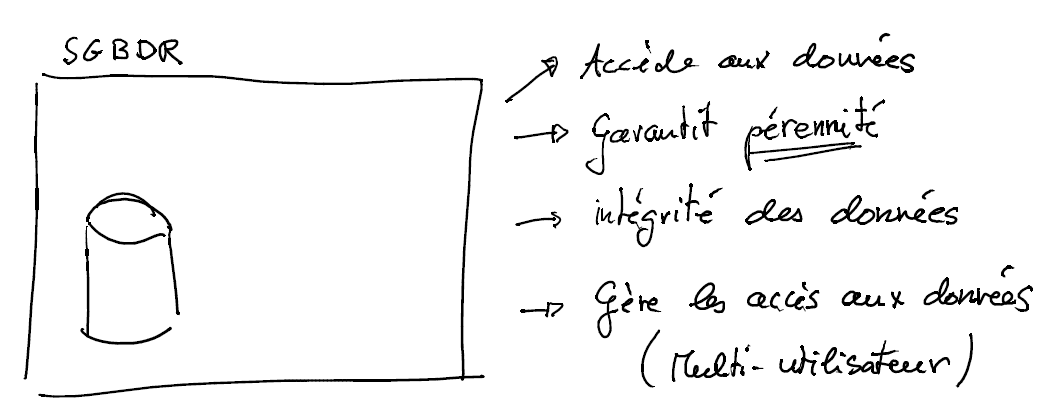 SGBDR
Accède aux données
Garantit pérennité
intégrité des données
Gère les accès aux données
(Multi-utilisateur)